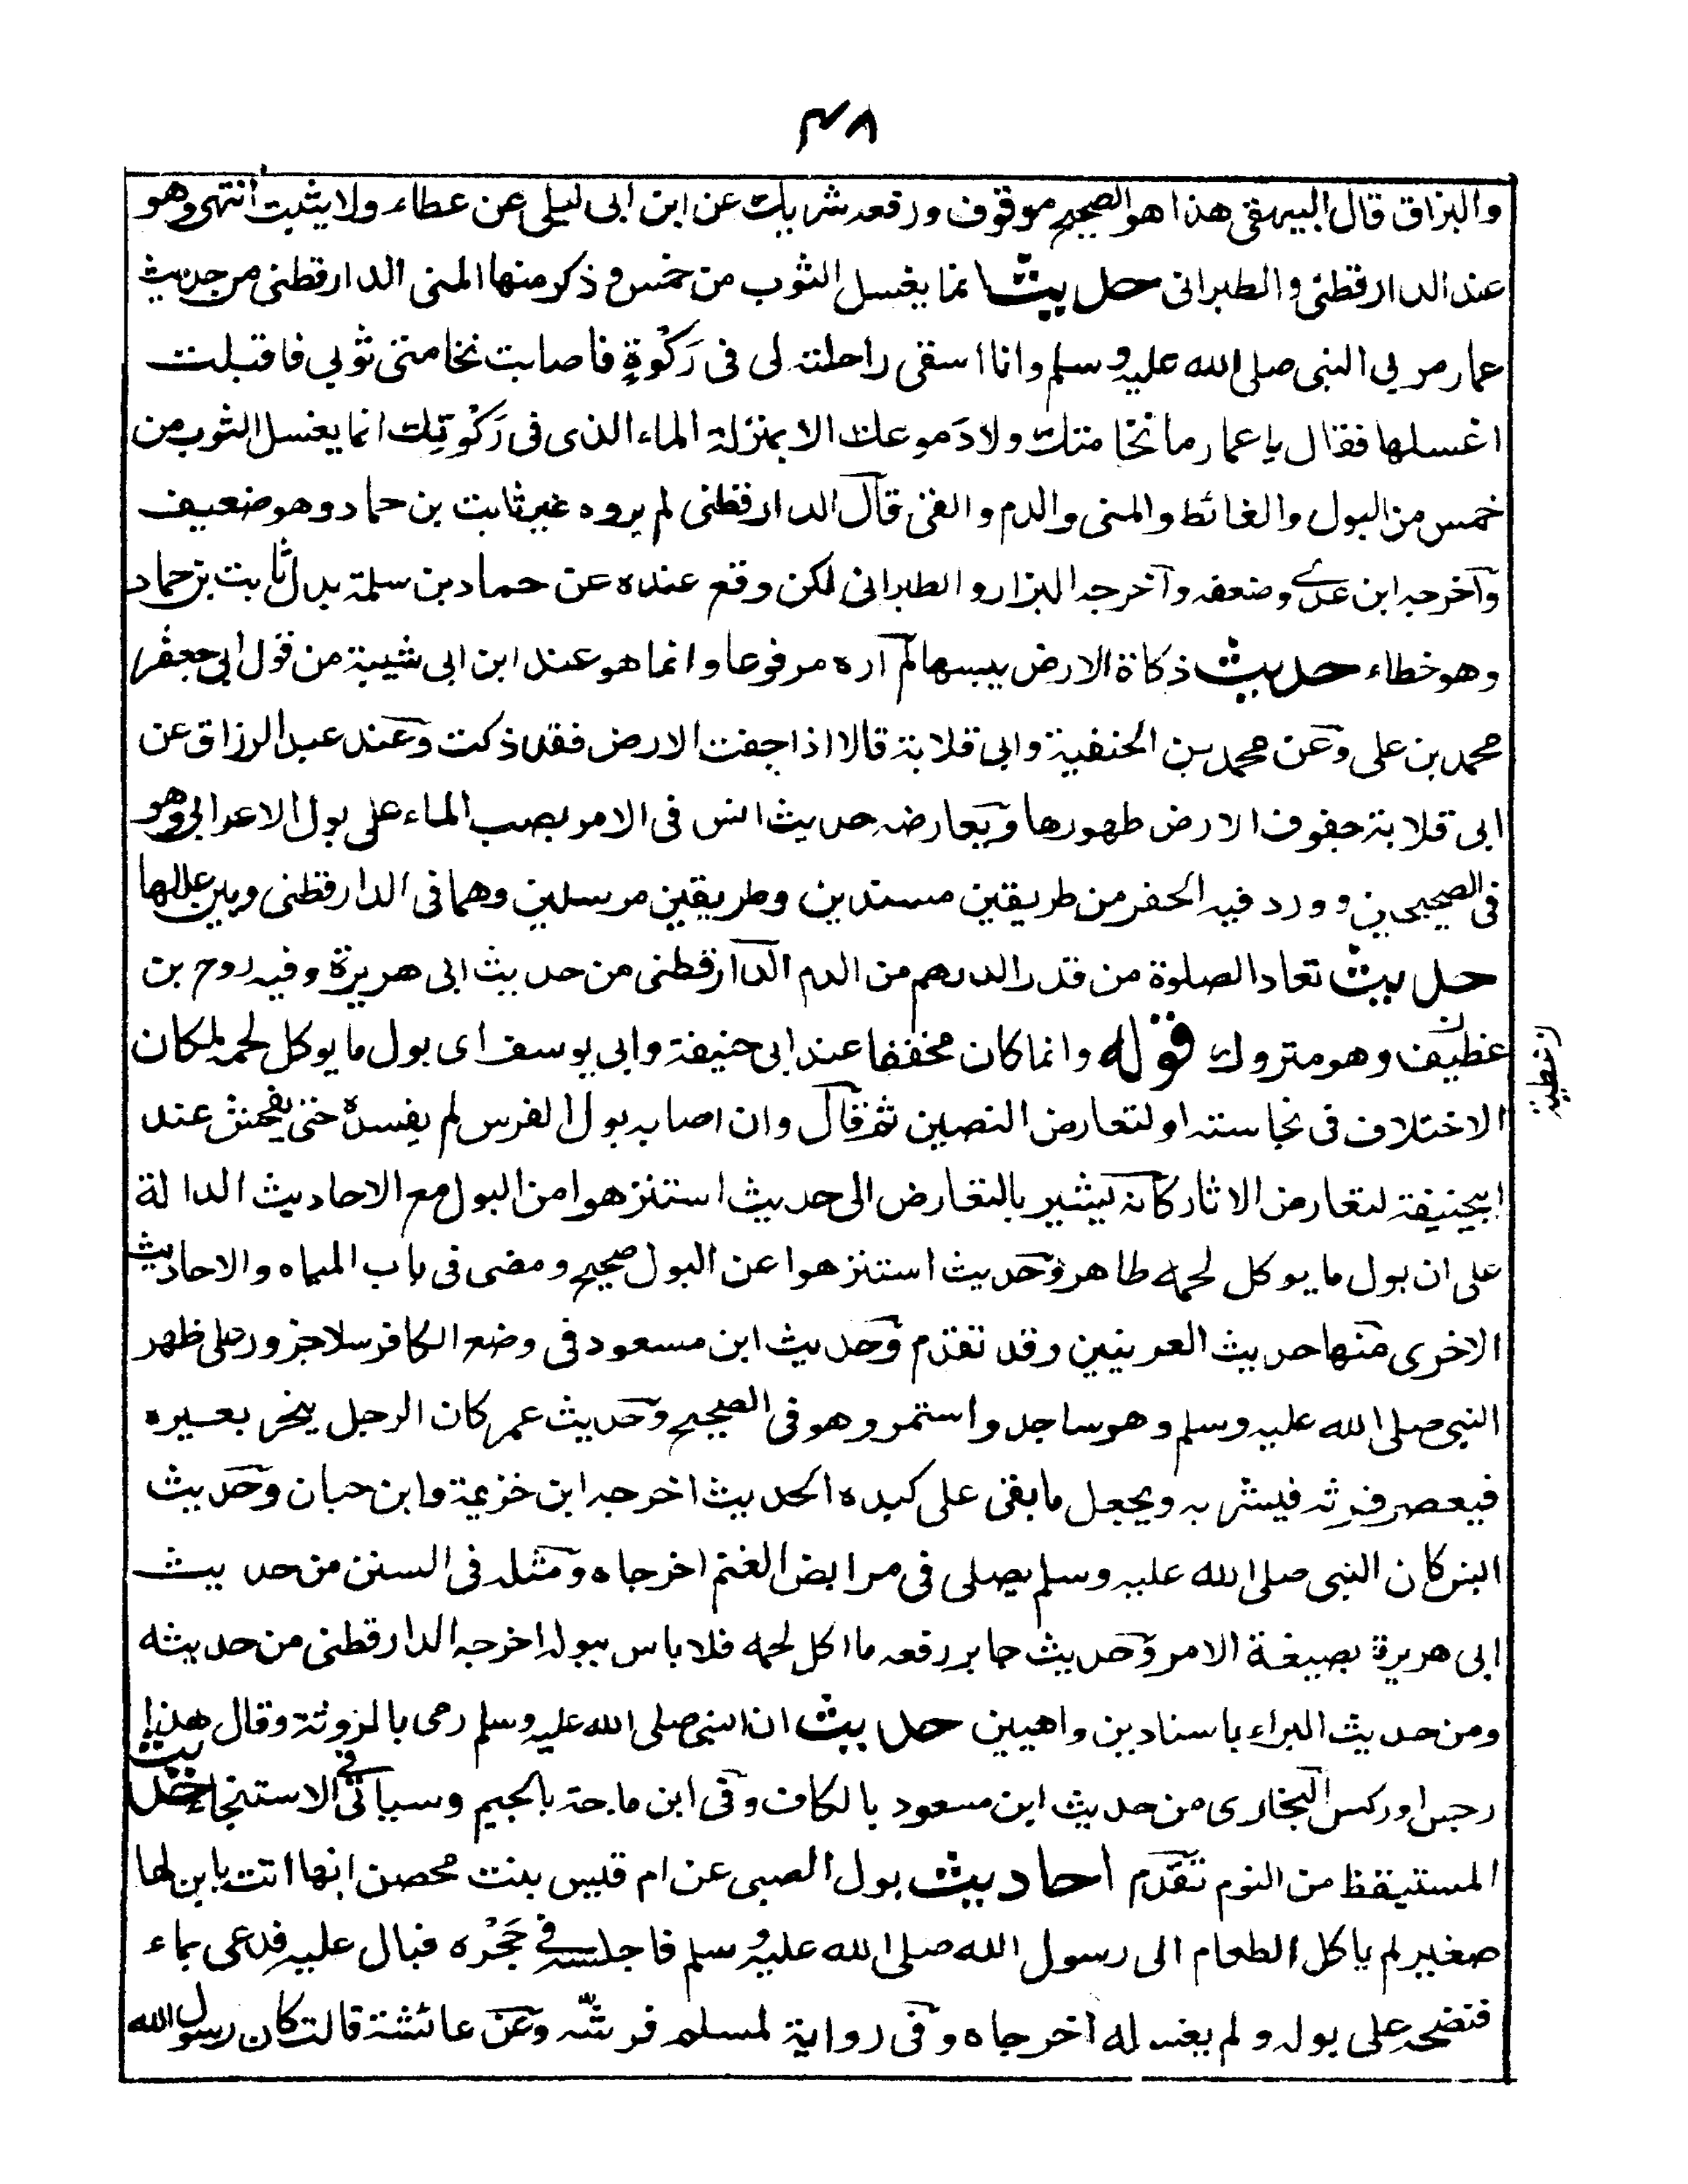 ٤٨
والبزاق قال البيهقى هذا هو الصحيح موقوف ورفعه شريك عن ابن ابى ليلى عن عطاء ولا يثبت انتهى وهو
عند الدارقطنى والطبرانى حديث انما يغسل الثوب من خمس وذكر منها المنى الدارقطنى من حديث
عمار مر بي النبى صلى الله عليه وسلم وانا اسقى راحلة لى فى رَكْوةٍ فاصابت نخامتى ثوبي فاقبلت
اغسلها فقال يا عمار ما نخامتك ولا دَموعك الا بمنزلة الماء الذى فى رَكْوتِك انما يغسل الثوب من
خمس من البول والغائط والمنى والدم والقئ قال الدارقطنى لم يروه غير ثابت بن حماد وهو ضعيف
وآخرجه ابن عدے وضعفه وآخرجه البزار والطبرانى لكن وقع عنده عن حماد بن سلمة بدل ثابت بن حماد
وهو خطاء حديث ذكاة الارض يبسها لم آره مرفوعا وانما هو عند ابن ابى شيبة من قول ابى جعفر
محمد بن على وعن محمد بن الحنفية وابى قلابة قالا اذا جفت الارض فقد ذكت وعند عبد الرزاق عن
ابى قلابة جفوف الارض طهورها ويعارضه حديث انس فى الامر بصب الماء على بول الاعرابى وهو
فى الصحيحين وورد فيه الحفر من طريقين مسندين وطريقين مرسلين وهما فى الدارقطنى وبين عللها
حديث تعاد الصلوة من قدر الدرهم من الدم الدارقطنى من حديث ابى هريرة وفيه روح بن
غطيف وهو متروك قوله وانما كان مخففا عند ابى حنيفة وابى يوسف اى بول ما يوكل لحمه لمكان
الاختلاف فى نجاسته او لتعارض النصين ثم قال وان اصابه بول الفرس لم يفسده حتى يفحش عند
ابيحنيفة لتعارض الاثار كانه يشير بالتعارض الى حديث استنزهوا من البول مع الاحاديث الدالة
على ان بول ما يوكل لحمه طاهر وحديث استنزهوا عن البول صحيح ومضى فى باب المياه والاحاديث
الاخرى منها حديث العرنيين وقد تقدم وحديث ابن مسعود فى وضع الكافر سلا جزور على ظهر
النبى صلى الله عليه وسلم وهو ساجد واستمر وهو فى الصحيح وحديث عمر كان الرجل ينحر بعيره
فيعصر فرثه فيشربه ويجعل ما بقى على كبده الحديث اخرجه ابن خزيمة وابن حبان وحديث
انس كان النبى صلى الله عليه وسلم يصلى فى مرابض الغنم اخرجاه ومثله فى السنن من حديث
ابى هريرة بصيغة الامر وحديث جابر رفعه ما اكل لحمه فلا باس ببوله اخرجه الدارقطنى من حديثه
ومن حديث البراء باسنادين واهيين حديث ان النبى صلى الله عليه وسلم رمى بالروثة وقال هذا
رجس او ركس البخارى من حديث ابن مسعود بالكاف وفى ابن ماجة بالجيم وسياتى فى الاستنجاء حديث
المستيقظ من النوم تقدم احاديث بول الصبى عن ام قيس بنت محصن انها اتت بابن لها
صغير لم ياكل الطعام الى رسول الله صلى الله عليه وسلم فاجلسه فے حَجْره فبال عليه فدعى بماء
فنضحه على بوله ولم يغسله اخرجاه وفى رواية لمسلم فرشّه وعن عائشة قالت كان رسول الله